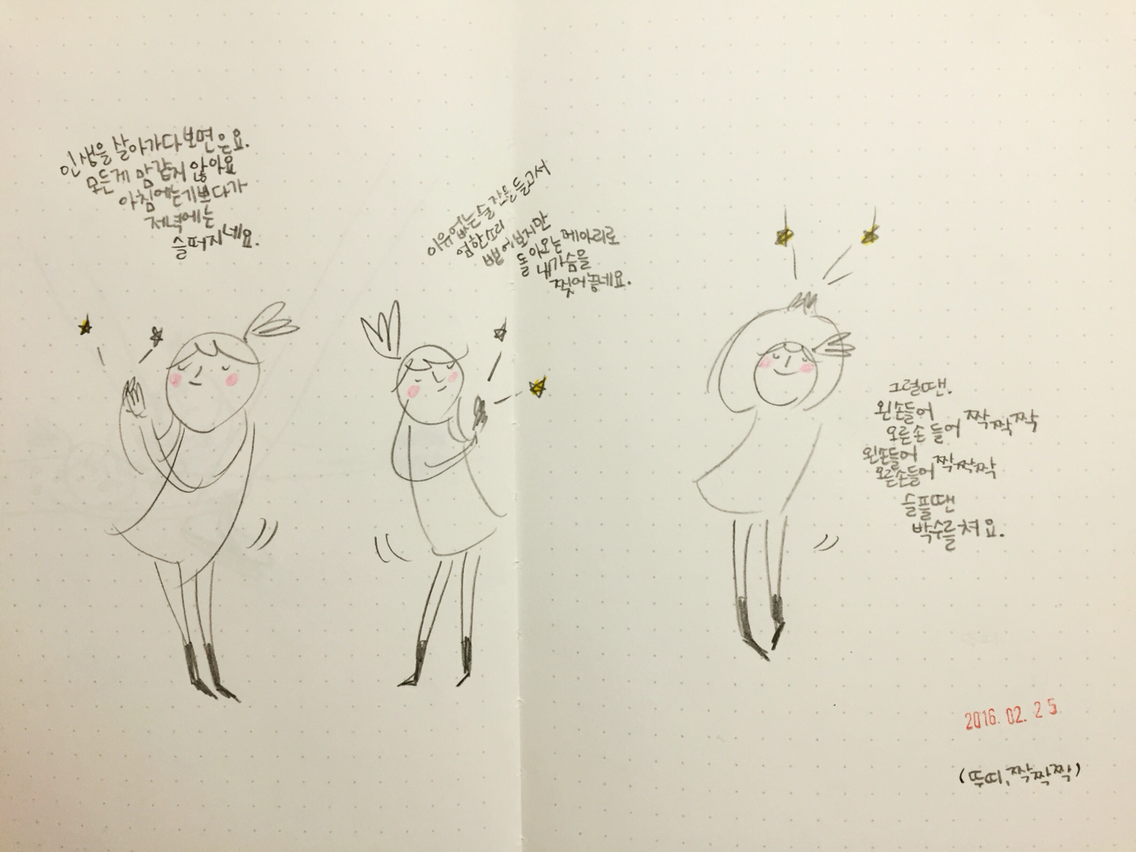 인생을 살아가다보면은요.
모든게 맘 같지 않아요
아침에는 기쁘다가
저녁에는
슬퍼지네요.
이유없는 술잔을 들고서
엄한소리
뱉어보지만
돌아오는 메아리로
내가슴을
찢어놓네요.
그럴땐.
왼손들어
오른손 들어 짝짝짝
왼손들어
오른손들어 짝짝짝
슬플땐
박수를 쳐요.
2016. 02. 25.
(뚜띠, 짝짝짝)